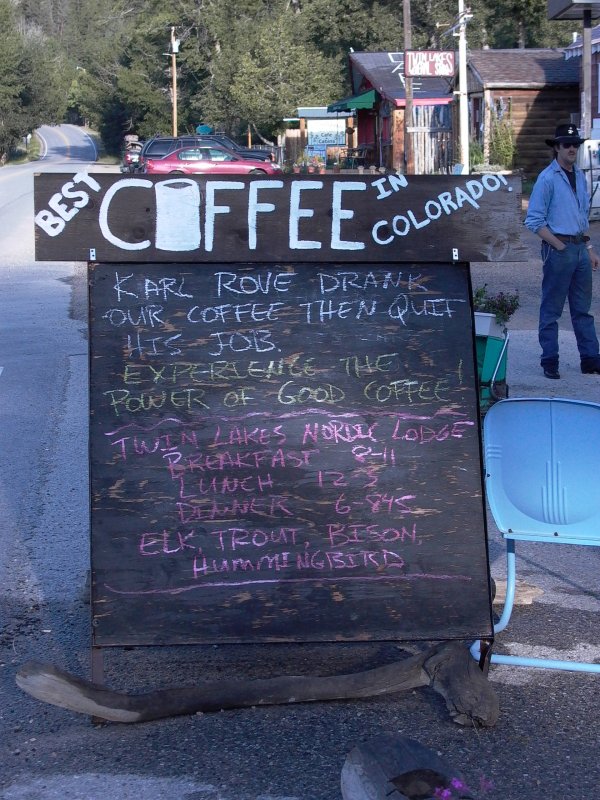 TWIN LAKES
GENERAL STORE
Cafe
Cabins
BEST COFFEE IN COLORADO!
KARL ROVE DRANK
OUR COFFEE THEN QUIT
HIS JOB.
EXPERIENCE THE
POWER OF GOOD COFFEE!
TWIN LAKES NORDIC LODGE
BREAKFAST 8-11
LUNCH 12-3
DINNER 6-845
ELK, TROUT, BISON,
HUMMINGBIRD